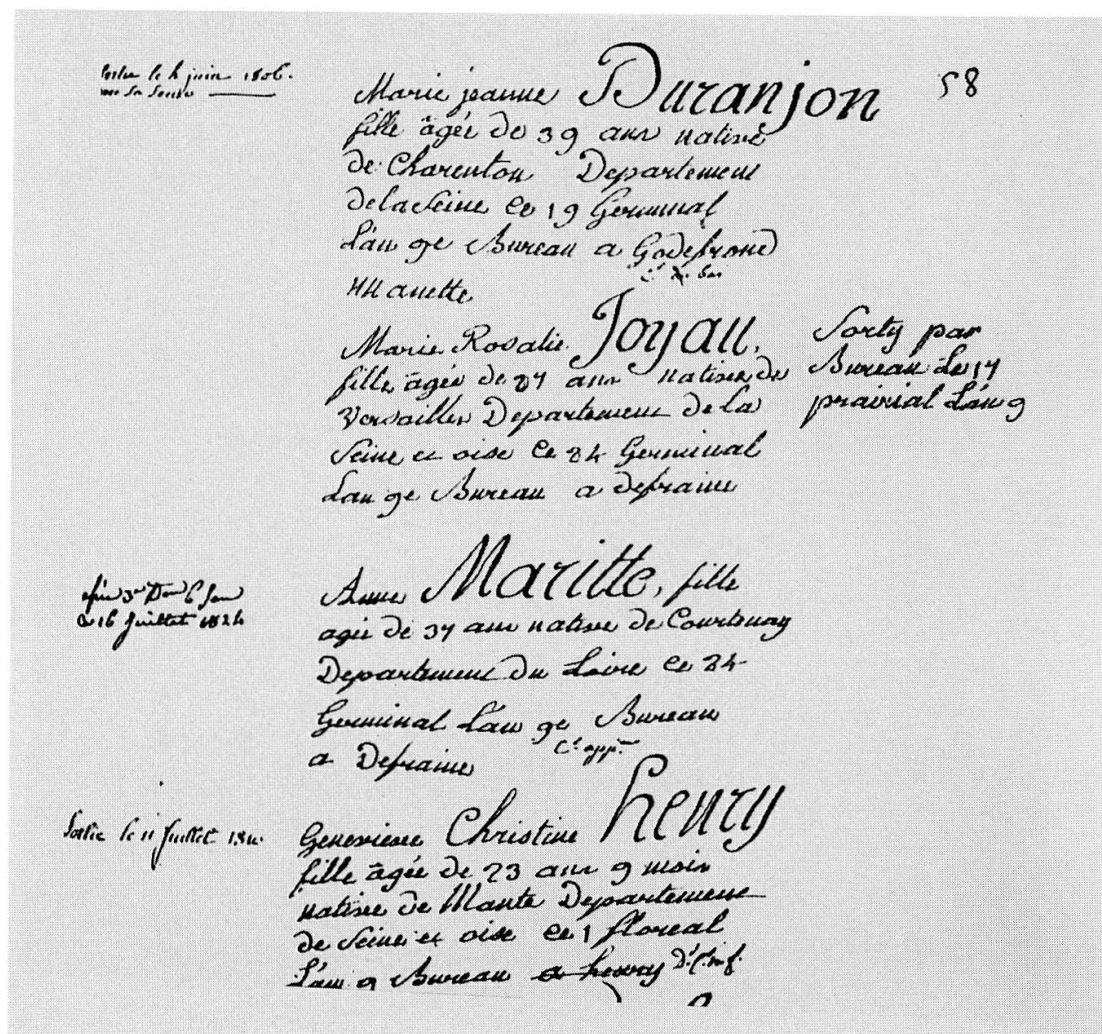 58
Sortie le 4 juin 1806.
Marie jeanne Duranjon
fille âgée de 39 ans native
de Charenton Departement
de la Seine le 19 Germinal
L'an 9e Bureau a
Manette
Marie Rosalie Joyau,
fille âgée de 27 ans native de
Versailles Departement de la
Seine et oise le 24 Germinal
L'an 9e Bureau a defraine
Sorty par
Bureau Le 17
prairial L'an 9
Le 16 Juillet 1824
Anne Maritte, fille
agée de 37 ans native de Courtenay
Departement du Loire le 24
Germinal L'an 9e Bureau
a Defraine
Sortie le 11 Juillet
Genevieve Christine henry
fille âgée de 23 ans 9 mois
native de Mante Departement
de Seine et oise le 1 floreal
L'an 9 Bureau a henry